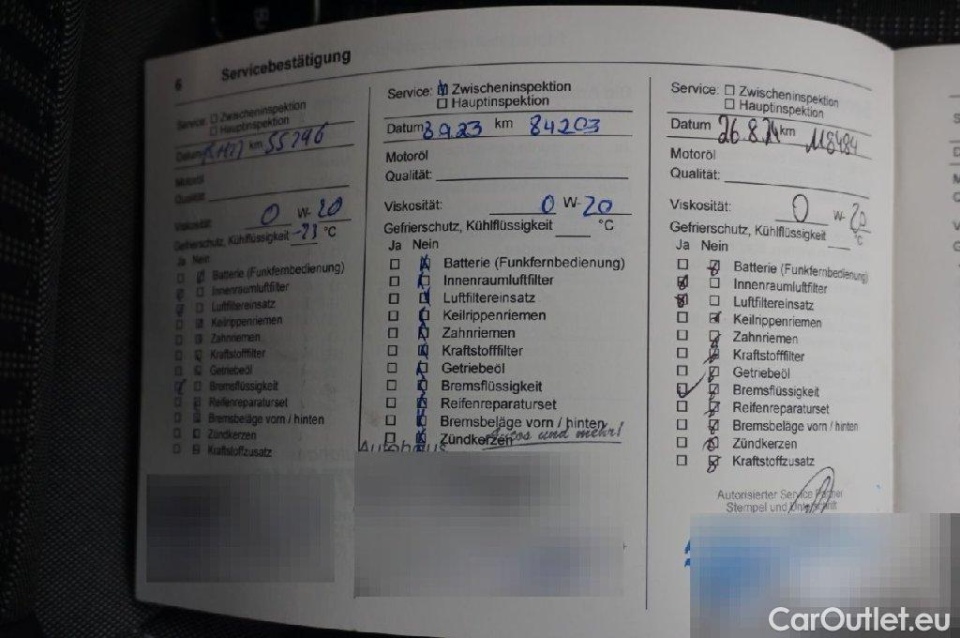 6 Servicebestätigung
Service: ☐ Zwischeninspektion
☐ Hauptinspektion
Datum km 55246
Motoröl
Qualität:
Viskosität: 0 W-20
Gefrierschutz, Kühlflüssigkeit °C
Ja Nein
Batterie (Funkfernbedienung)
Innenraumluftfilter
Luftfiltereinsatz
Keilrippenriemen
Zahnriemen
Kraftstofffilter
Getriebeöl
Bremsflüssigkeit
Reifenreparaturset
Bremsbeläge vorn / hinten
Zündkerzen
Kraftstoffzusatz
Service: Zwischeninspektion
☐ Hauptinspektion
Datum 8923 km 84203
Motoröl
Qualität:
Viskosität: 0 W-20
Gefrierschutz, Kühlflüssigkeit °C
Ja Nein
Batterie (Funkfernbedienung)
Innenraumluftfilter
Luftfiltereinsatz
Keilrippenriemen
Zahnriemen
Kraftstofffilter
Getriebeöl
Bremsflüssigkeit
Reifenreparaturset
Bremsbeläge vorn / hinten
Zündkerzen
Autohaus und mehr!
Service: ☐ Zwischeninspektion
☐ Hauptinspektion
Datum 26.8.24 km 118484
Motoröl
Qualität:
Viskosität: 0 W-20
Gefrierschutz, Kühlflüssigkeit °C
Ja Nein
Batterie (Funkfernbedienung)
Innenraumluftfilter
Luftfiltereinsatz
Keilrippenriemen
Zahnriemen
Kraftstofffilter
Getriebeöl
Bremsflüssigkeit
Reifenreparaturset
Bremsbeläge vorn / hinten
Zündkerzen
Kraftstoffzusatz
Autorisierter Service Partner
Stempel und Unterschrift
CarOutlet.eu